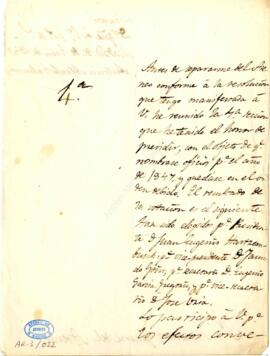 4.ª
Antes de separarme del Ate-
neo conforme á la resolucion
que tengo manifestada á
V. he reunido la 4.ª seccion
que he tenido el honor de
presidir, con el objeto de q.e
nombrase oficios p.a el año
de 1847, y quedase en el or-
den debido. El resultado de
la votacion es el siguiente
han sido elegidos p.a Presiden-
te D. Juan Eugenio Hartzem-
busch, p.a vicepresidente D.
p.a secretario D. Eugenio
García y p.a vice-secreta-
rio D. José
Lo participo á V. p.a
los efectos conve-
AR-3/022